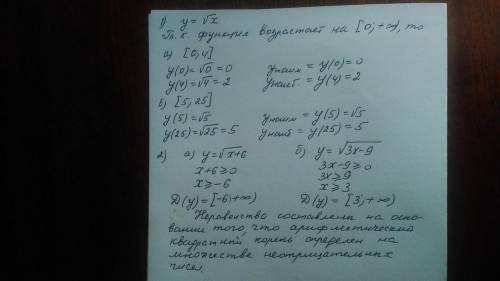 1) y = √x
Т.к. функция возрастает на [0; +∞), то
а) [0, 4]
y(0) = √0 = 0    yнаим = y(0) = 0
y(4) = √4 = 2    yнаиб = y(4) = 2
б) [5, 25]
y(5) = √5    yнаим = y(5) = √5
y(25) = √25 = 5    yнаиб = y(25) = 5
2) а) y = √x+6    б) y = √3x-9
x+6 ≥ 0    3x-9 ≥ 0
x ≥ -6    3x ≥ 9
x ≥ 3
D(y) = [-6; +∞)    D(y) = [3; +∞)
Неравенства составлены на осно-
вании того, что арифметический
квадратный корень определен на
множестве неотрицательных
чисел